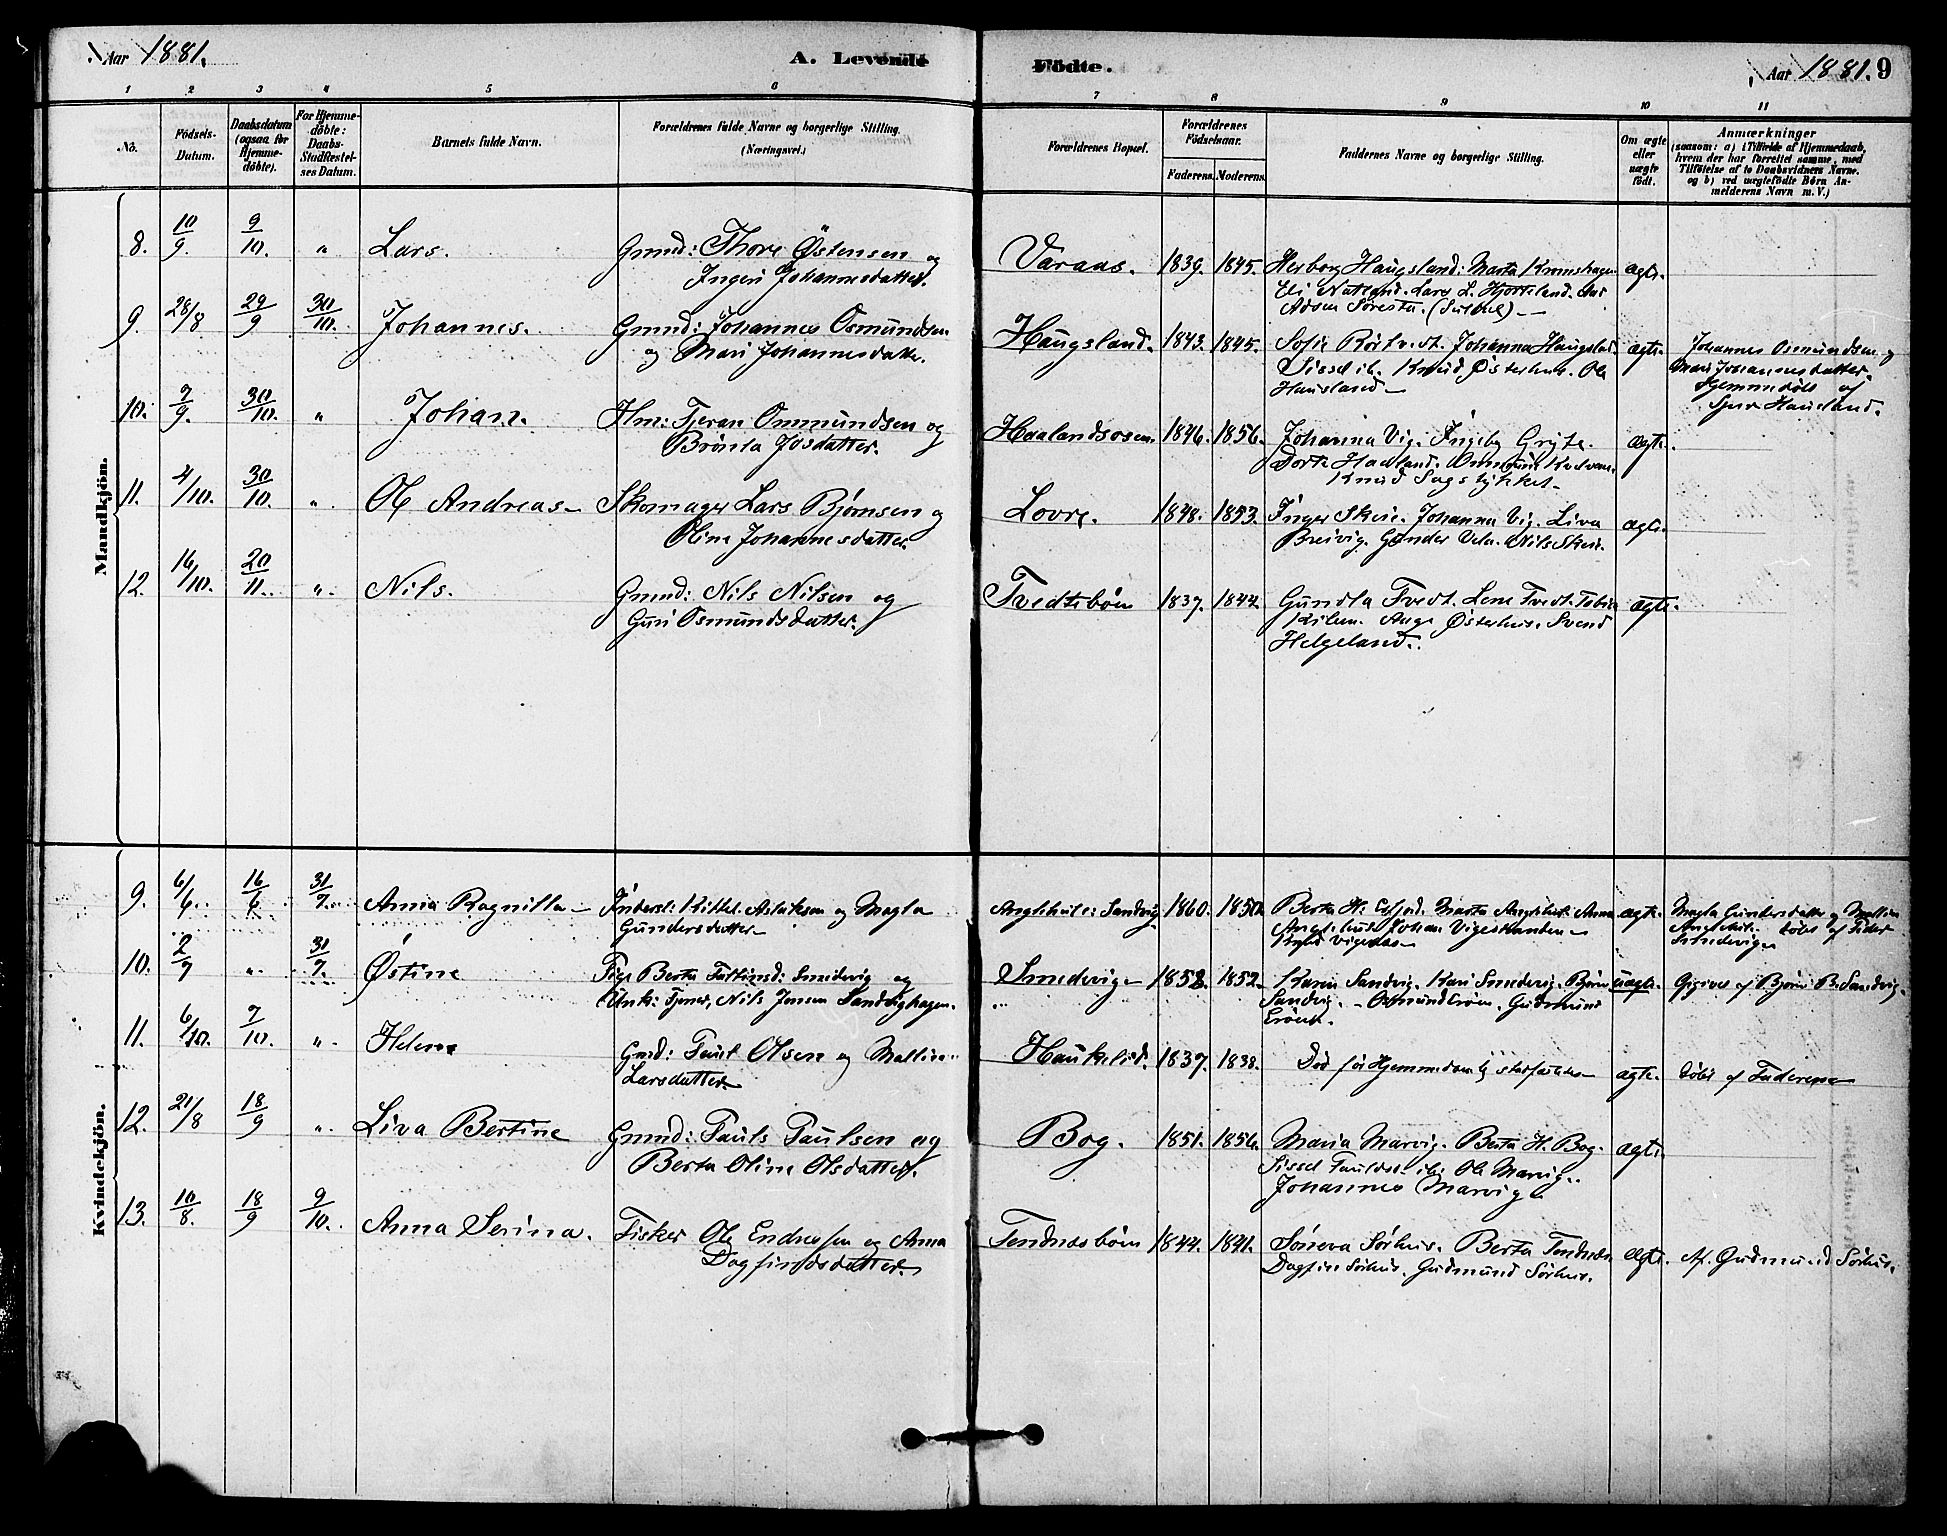 Aar 1881.
A. Levende
Fødte.
Aar 1881. 9
1 2 3 4 5 6 7 8 9 10 11
No.
Fødsels-
Datum.
Daabsdatum
(ogsaa for
Hjemme-
døbte).
For Hjemme-
døbte:
Daabs-
Stadfæstel-
ses Datum.
Barnets fulde Navn.
Forældrenes fulde Navne og borgerlige Stilling.
(Næringsvei.)
Forældrenes Bopæl.
Forældrenes
Fødselsaar.
Faderens. Moderens.
Faddernes Navne og borgerlige Stilling.
Om ægte
eller
uægte
født.
Anmærkninger
(saasom: a) i Tilfælde af Hjemmedaab,
hvem der har forrettet samme, med
Tilføielse af to Daabsvidners Navne.
og b) ved uægtefødte Børn An-
melderens Navn m. V.)
Mandkjøn.
8. 10/9. 9/10. " Lars. Gmnd: Thore Østensen og
Ingeri Johannesdatter.
Varaas. 1839. 1845. Herborg Haugsland. Marta
Eli Natland. Lars L. Hjorteland.
ægte.
9. 28/8 29/9 30/10. Johannes. Gmnd: Johannes Osmundsen
og Mari Johannesdatter.
Haugsland. 1843. 1845. Sofie Johanna Haugsland.
Sissel ib. Knud Østerhus. Ole
Hausland
ægte. Johannes Osmundsen og
Mari Johannesdatter.
Hjemmedøbt af
Hausland.
10. 7/9. 30/10. " Johan. Hm: Tjeran Ommundsen og
Brönla Josdatter.
Haalandsosen. 1846. 1856. Johanna Vig. Ingeb. Grjte.
Dorte Haaland.
Knud Sagstykket
ægte.
11. 4/10. 30/10. " Ole Andreas Skomager Lars Bjørnsen og
Oline Johannesdatter.
Lovre. 1848. 1853. Inger Skeie. Johanna Vig. Liva
Breivig. Gunder Nils Skeie.
ægte.
12. 16/10. 20/11. " Nils. Gmnd: Nils Nilsen og
Guri Osmundsdatter.
Tvedtsbøen 1837. 1844 Gundla Tvedt. Lene Tvedt.
Aage Østerhus. Svend
Helgeland.
ægte.
Kvindekjøn.
9. 6/6. 16/6 31/7. Anna Ragnilla Inderst: Kittel Aslaksen og Magla
Gundersdatter
Sandvig 1860. 1850. Berta H. Marta Anna
Johan
ægte. Magla Gundersdatter og Malline
døbt af
Smedevig
10. 2/7 " 31/7. Østine Pige Berta
Unk: Tjener, Nils Jensen Sandvighagen.
Smedevig 1852. 1852. Karen Sandvig. Kari Smedevig. Bjørn
Sandvig. Gudmund
uægte. Opgivet af Bjørn B. Sandvig.
11. 6/10. 7/10. " Helene Gmd: Paul Olsen og Malline
Larsdatter
Haukelid. 1837. 1838. Død før Hjemmedaab
ægte. døbt af Faderen
12. 21/8 18/9 " Liva Bertine Gmnd: Pauls Paulsen og
Berta Oline Olsdatter.
Bog. 1851. 1856. Maria Marvig. Berta H. Bog.
Sissel ib. Ole Marvig.
Johannes Marvig
ægte.
13. 10/8. 18/9 9/10. Anna Serina. Fisker Ole Endresen og Anna
Dagfindsdatter.
Tendnesbøen 1844. 1841. Søneva Sørhus. Berta Tendnes
Dagfin Sørhus. Gudmund Sørhus.
ægte. Af Gudmund Sørhus.